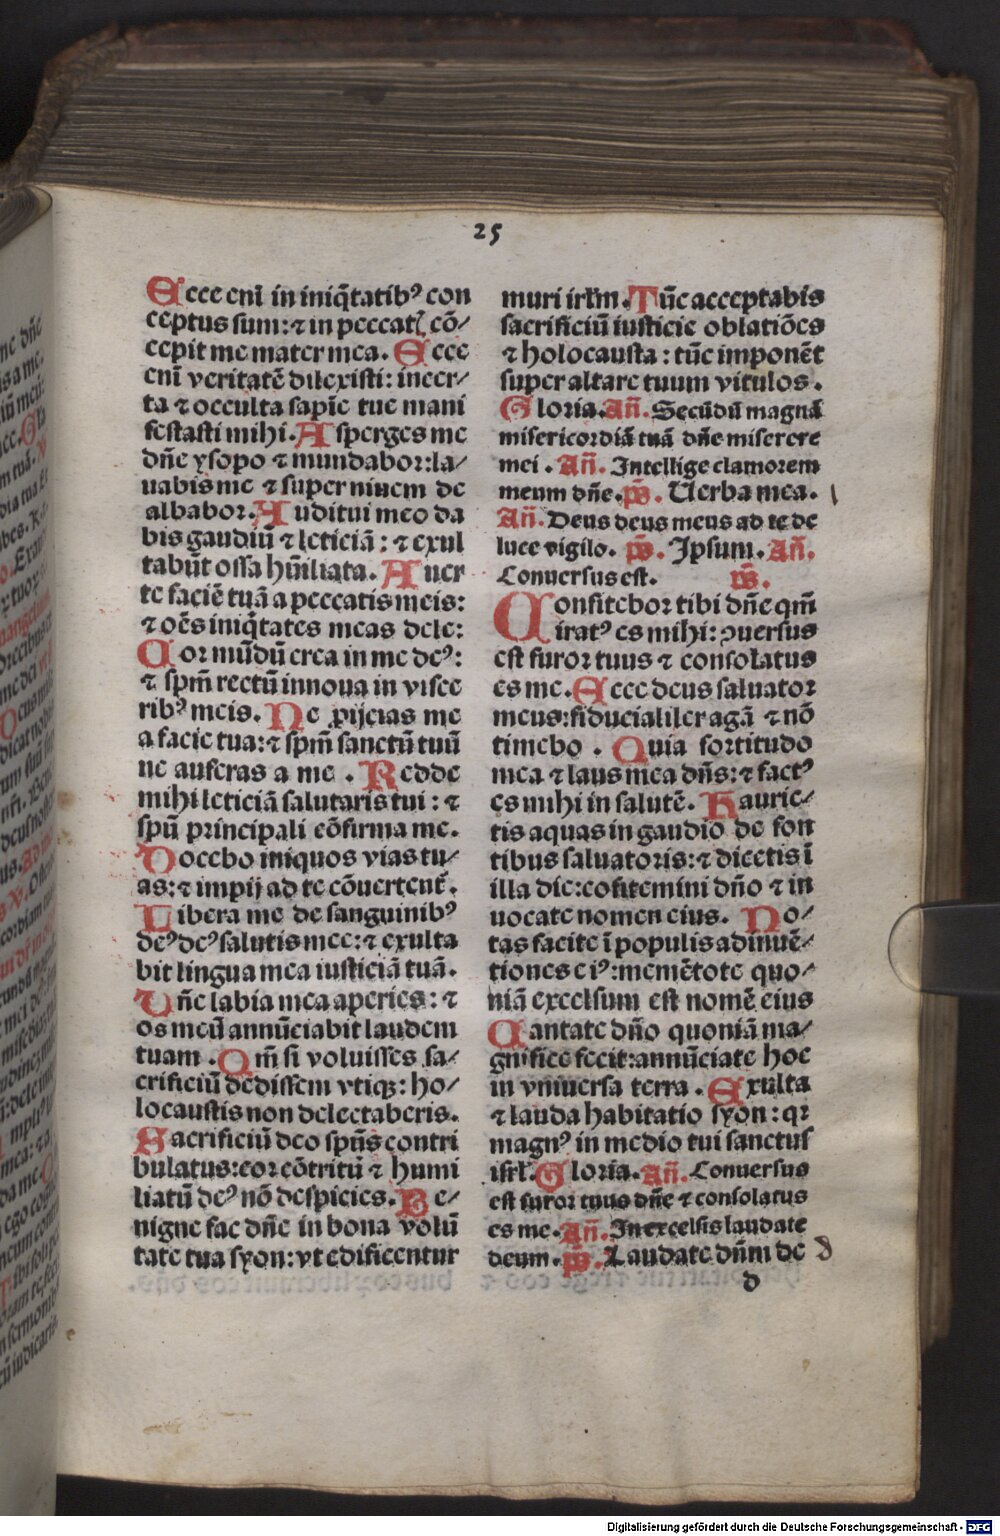 25
Ecce enī in iniq̄tatibꝰ con
ceptus sum: ⁊ in peccatꝭ cō⸗
cepit me mater mea. Ecce
enī veritatē dilexisti: incer⸗
ta ⁊ occulta sapīe tue mani
festasti mihi. Asperges me
dn̄e ysopo ⁊ mundabor: la⸗
uabis me ⁊ super niuem de
albabor. Auditui meo da
bis gaudiū ⁊ leticiā: ⁊ exul
tabūt ossa hūiliata. Auer
te faciē tuā a peccatis meis:
⁊ oēs iniq̄tates meas dele:
Cor mūdū crea in me deꝰ:
⁊ spm̄ rectū innoua in visce
ribꝰ meis. Ne ꝓijcias me
a facie tua: ⁊ spm̄ sanctū tuū
ne auferas a me. Redde
mihi leticiā salutaris tui: ⁊
spū principali cōfirma me.
Docebo iniquos vias tu⸗
as: ⁊ impij ad te cōuertent̄.
Libera me de sanguinibꝰ
deꝰ deꝰ salutis mee: ⁊ exulta
bit lingua mea iusticiā tuā.
Dn̄e labia mea aperies: ⁊
os meū annūciabit laudem
tuam. Qm̄ si voluisses sa⸗
crificiū dedissem vtiqꝫ: ho⸗
locaustis non delectaberis.
Sacrificiū deo spūs contri
bulatus: cor cōtritū ⁊ humi
liatū deꝰ nō despicies. Be⸗
nigne fac dn̄e in bona volū
tate tua syon: vt edificentur
muri irlm̄. Tūc acceptabis
sacrificiū iusticie oblatiōes
⁊ holocausta: tūc imponēt
super altare tuum vitulos.
Gloria. An̄. Secūdū magnā
misericordiā tuā dn̄e miserere
mei. An̄. Intellige clamorem
meum dn̄e. p̄s. Uerba mea.
An̄. Deus deus meus ad te de
luce vigilo. p̄s. Ipsum. An̄.
Conuersus est. p̄s.
Confitebor tibi dn̄e qm̄
iratꝰ es mihi: ꝯuersus
est furor tuus ⁊ consolatus
es me. Ecce deus saluator
meus: fiducialiter agā ⁊ nō
timebo. Quia fortitudo
mea ⁊ laus mea dn̄s: ⁊ factꝰ
es mihi in salutē. Haurie⸗
tis aquas in gaudio de fon
tibus saluatoris: ⁊ dicetis ī
illa die: cōfitemini dn̄o ⁊ in
uocate nomen eius. No⸗
tas facite ī populis adinuē⸗
tiones eiꝰ: memētote quo⸗
niā excelsum est nomē eius
Cantate dn̄o quoniā ma⸗
gnifice fecit: annūciate hoc
in vniuersa terra. Exulta
⁊ lauda habitatio syon: qꝛ
magnꝰ in medio tui sanctus
isrl̄. Gloria. An̄. Conuersus
est furor tuus dn̄e ⁊ consolatus
es me. An̄. In excelsis laudate
deum. p̄s. Laudate dn̄m de
d
Digitalisierung gefördert durch die Deutsche Forschungsgemeinschaft - DFG